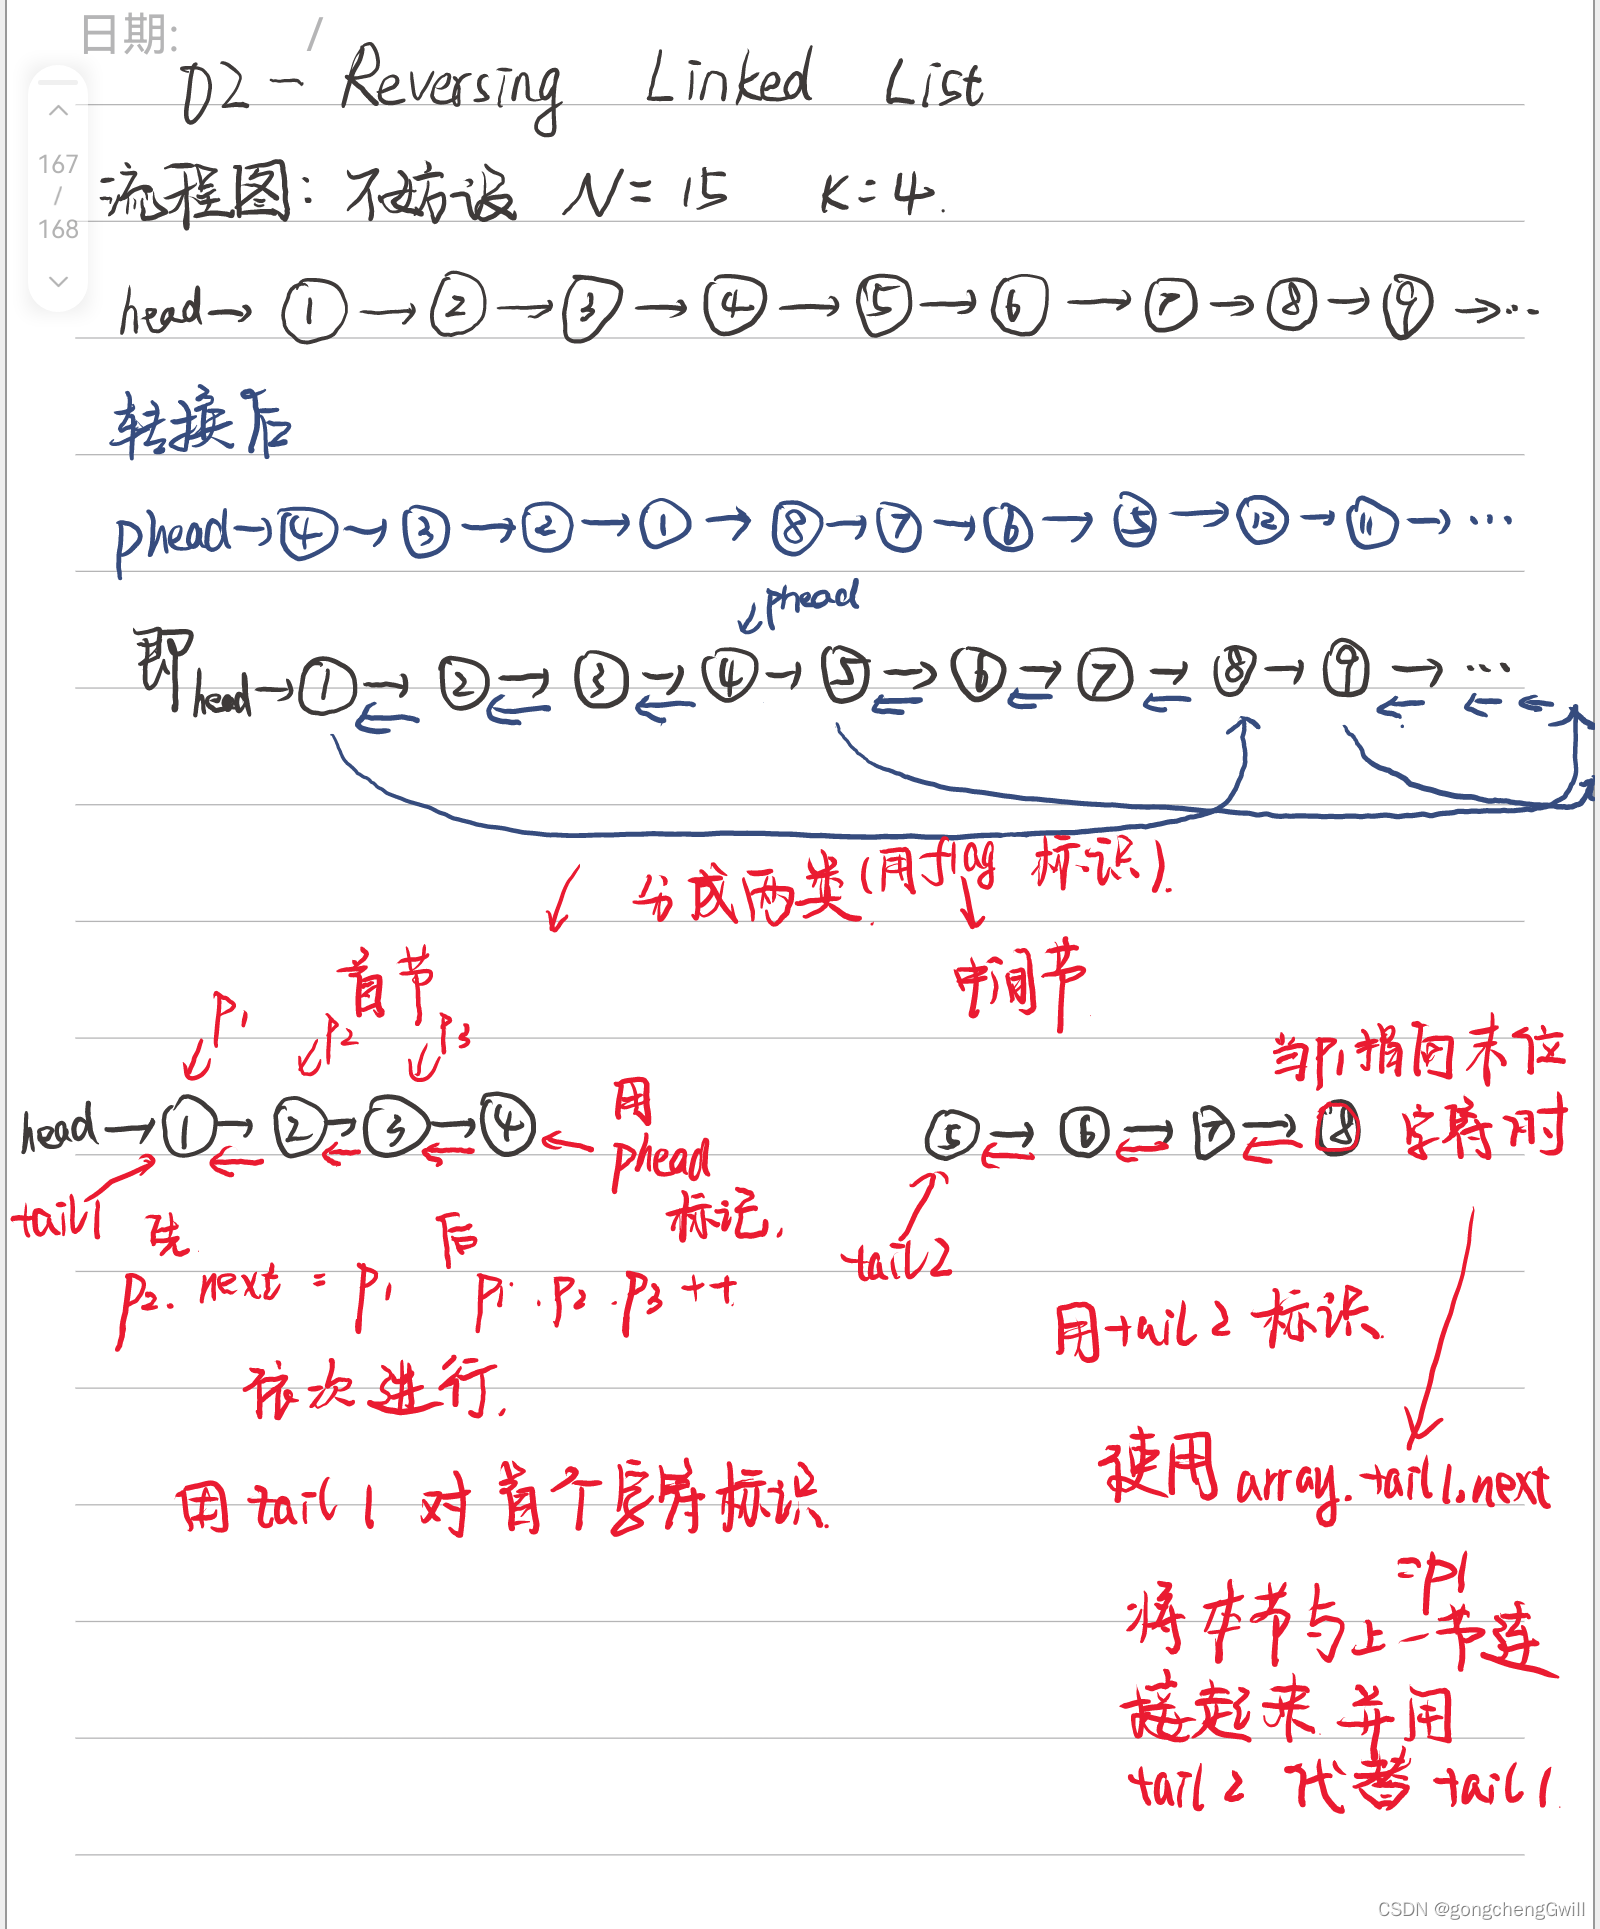 日期: /
02 - Reversing Linked List
167
/
168
流程图: 不妨设 N = 15 K = 4.
head → ① → ② → ③ → ④ → ⑤ → ⑥ → ⑦ → ⑧ → ⑨ → ...
转接后
phead → ④ → ③ → ② → ① → ⑧ → ⑦ → ⑥ → ⑤ → ⑫ → ⑪ → ...
phead
即 head → ① → ② → ③ → ④ → ⑤ → ⑥ → ⑦ → ⑧ → ⑨ → ...
分成两类(用flag 标识).
首节
中间节
p1 p2 p3
head → ① → ② → ③ → ④
用
phead
标记.
tail1
先 后
p2. next = p1 p1. p2. p3 ++
依次进行.
用 tail1 对首个字符标识.
当p1指向末位
字符时
⑤ → ⑥ → ⑦ → ⑧
tail2
用tail2标识.
使用 array.tail1.next
=p1
将本节与上一节连
接起来 并用
tail2 代替 tail1.
CSDN @gongchengGwill